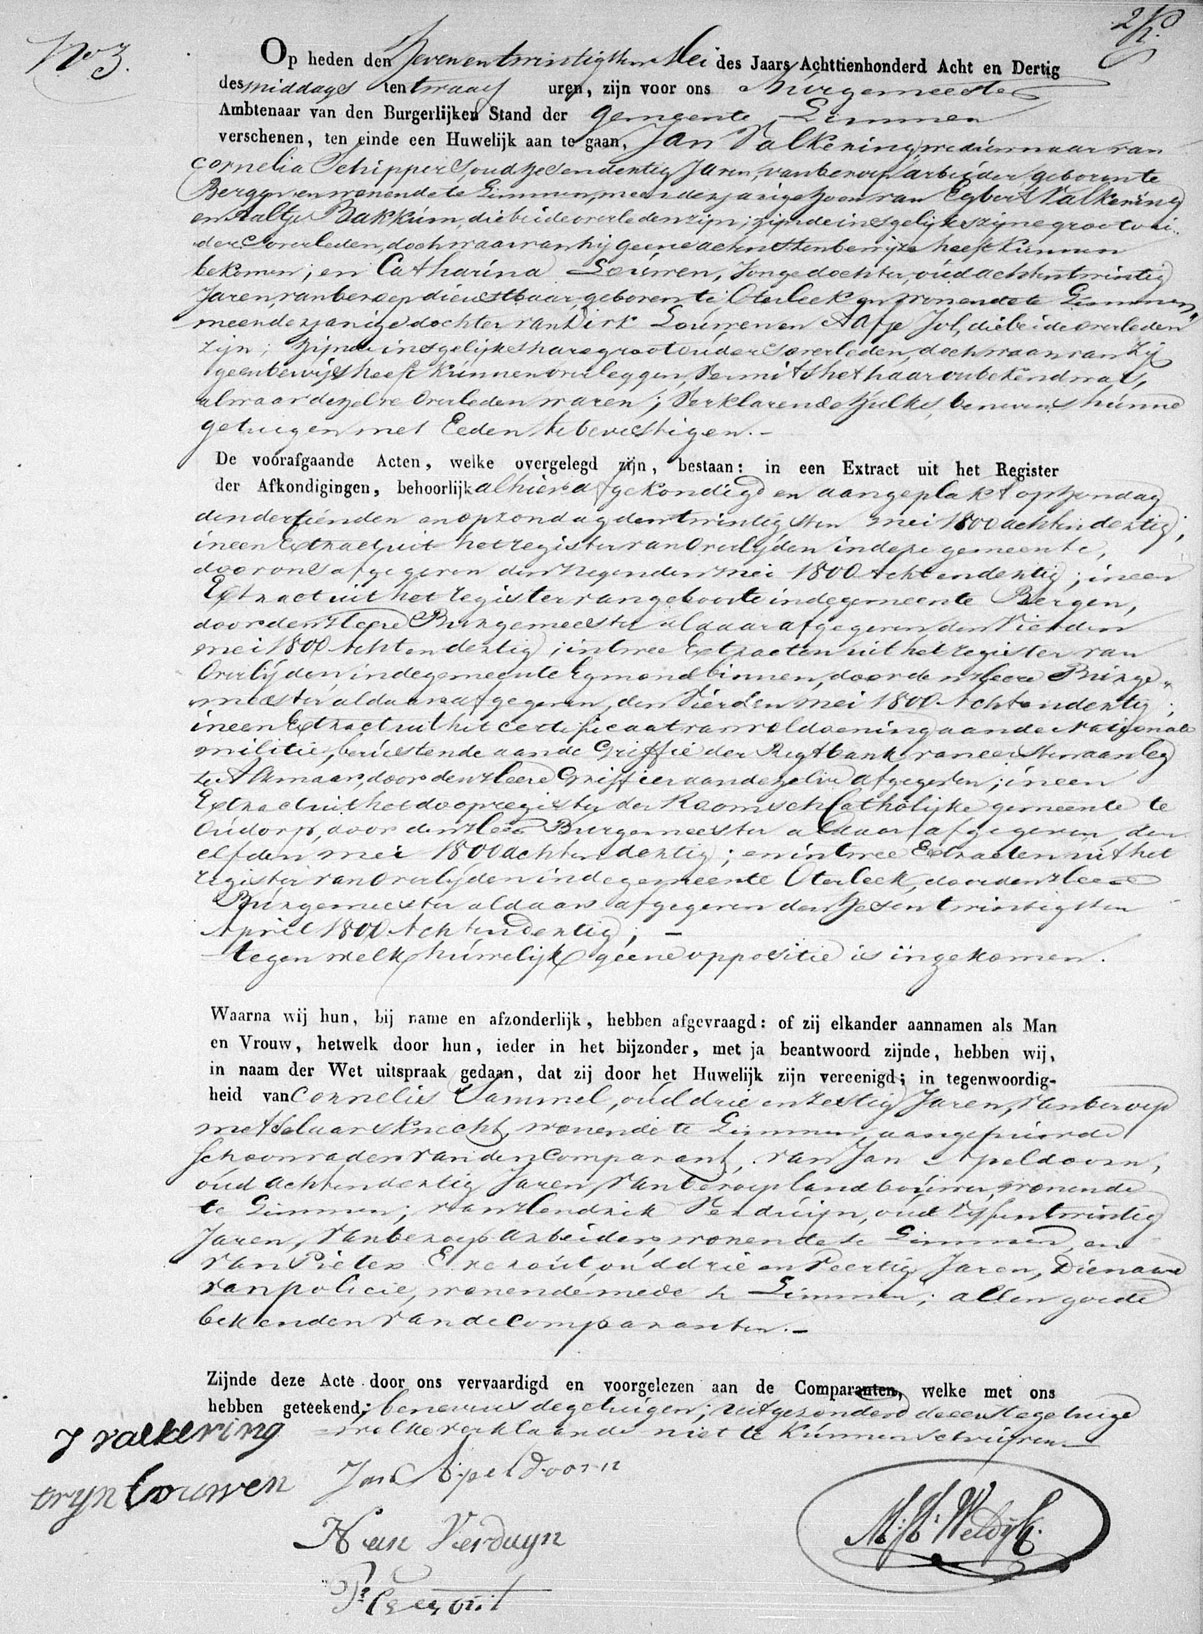 No 3.
Op heden den Zevenentwintigsten Mei des Jaars Achttienhonderd Acht en Dertig
des middags ten twaalf uren, zijn voor ons Burgemeester
Ambtenaar van den Burgerlijken Stand der gemeente Limmen
verschenen, ten einde een Huwelijk aan te gaan, Jan Valkering, weduwnaar van
Cornelia Schipper, oud zes en dertig Jaren, van beroep arbeider geboren te
Bergen en wonende te Limmen, meerderjarige zoon van Egbert Valkering
en Aaltje Bakkum, die beide overleden zijn; zijnde insgelijks zijne grootou-
ders overleden, doch waarvan hij geene achtsten bewijze heeft kunnen
bekomen; en Catharina Louwen, Jonge dochter, oud achtentwintig
Jaren, van beroep dienstbaar, geboren te Oterleek en wonende te Limmen,
meerderjarige dochter van Dirk Louwen en Aafje Jol, die beide overleden
zijn; zijnde insgelijks hare grootouders overleden, doch waarvan zij
geen bewijs heeft kunnen overleggen, vermits het haar onbekend was,
alwaar dezelve overleden waren; Verklarende zulks, benevens hunne
getuigen met Eeden te bevestigen.-
De voorafgaande Acten, welke overgelegd zijn, bestaan: in een Extract uit het Register
der Afkondigingen, behoorlijk alhier afgekondigd en aangeplakt op Zondag
den dertienden en op zondag den twintigsten mei 1800 achtendertig;
in een Extract uit het register van Overlijden in deze gemeente,
door ons afgegeven den negenden mei 1800 Achtendertig; in een
Extract uit het register van geboorte in de gemeente Bergen,
door den Heere Burgemeester aldaar afgegeven den Vierden
mei 1800 Achtendertig; in twee Extracten uit het register van
Overlijden in de gemeente Egmond binnen, door den Heere Burge-
meester aldaar afgegeven, den Vierden mei 1800 Achtendertig;
in een Extract uit het certificaat van voldoening aan de Nationale
militie, berustende aan de Griffie der Regtbank van eersten aanleg
te Alkmaar, door den Heere Griffier van dezelve afgegeven; in een
Extract uit het doopregister der Roomsch Catholijke gemeente te
Oudorp, door den Heere Burgemeester aldaar afgegeven, den
elfden mei 1800 achtendertig; en in twee Extracten uit het
register van Overlijden in de gemeente Oterleek, door den Heere
Burgemeester aldaar afgegeven den Zesentwintigsten
April 1800 Achtendertig; -
tegen welk huwelijk geene oppositie is ingekomen.
Waarna wij hun, bij name en afzonderlijk, hebben afgevraagd: of zij elkander aannamen als Man
en Vrouw, hetwelk door hun, ieder in het bijzonder, met ja beantwoord zijnde, hebben wij,
in naam der Wet uitspraak gedaan, dat zij door het Huwelijk zijn vereenigd; in tegenwoordig-
heid van Cornelis Sammel, oud drie en zestig Jaren, van beroep
metselaars knecht, wonende te Limmen, aangehuwde
schoonvader van den Comparant, van Jan Apeldoorn,
oud achtendertig Jaren, van beroep landbouwer, wonende
te Limmen; van Hendrik Verduijn, oud Vijfentwintig
Jaren, van beroep arbeider, wonende te Limmen, en
van Pieter oud drie en Veertig Jaren, Dienaar
van policie, wonende mede te Limmen; allen goede
bekenden van de Comparanten.-
Zijnde deze Acte door ons vervaardigd en voorgelezen aan de Comparanten, welke met ons
hebben geteekend; benevens de getuigen; uitgezonderd de eerste getuige
welke verklaarde niet te kunnen schrijven
J valkering
tryn Louwen
Jan Apeldoorn
Verduyn